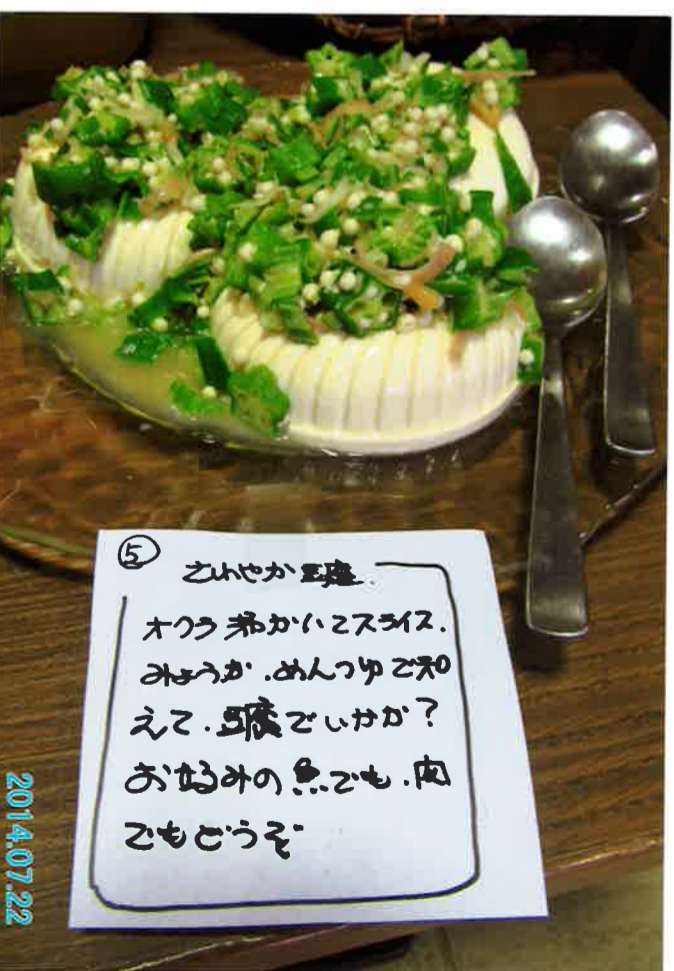 ⑤
さわやか豆腐.
オクラ粗かいてスライス.
みょうが.めんつゆで和
えて.豆腐でいかが?
お好みの魚でも.肉
でもどうぞ
2014.07.22